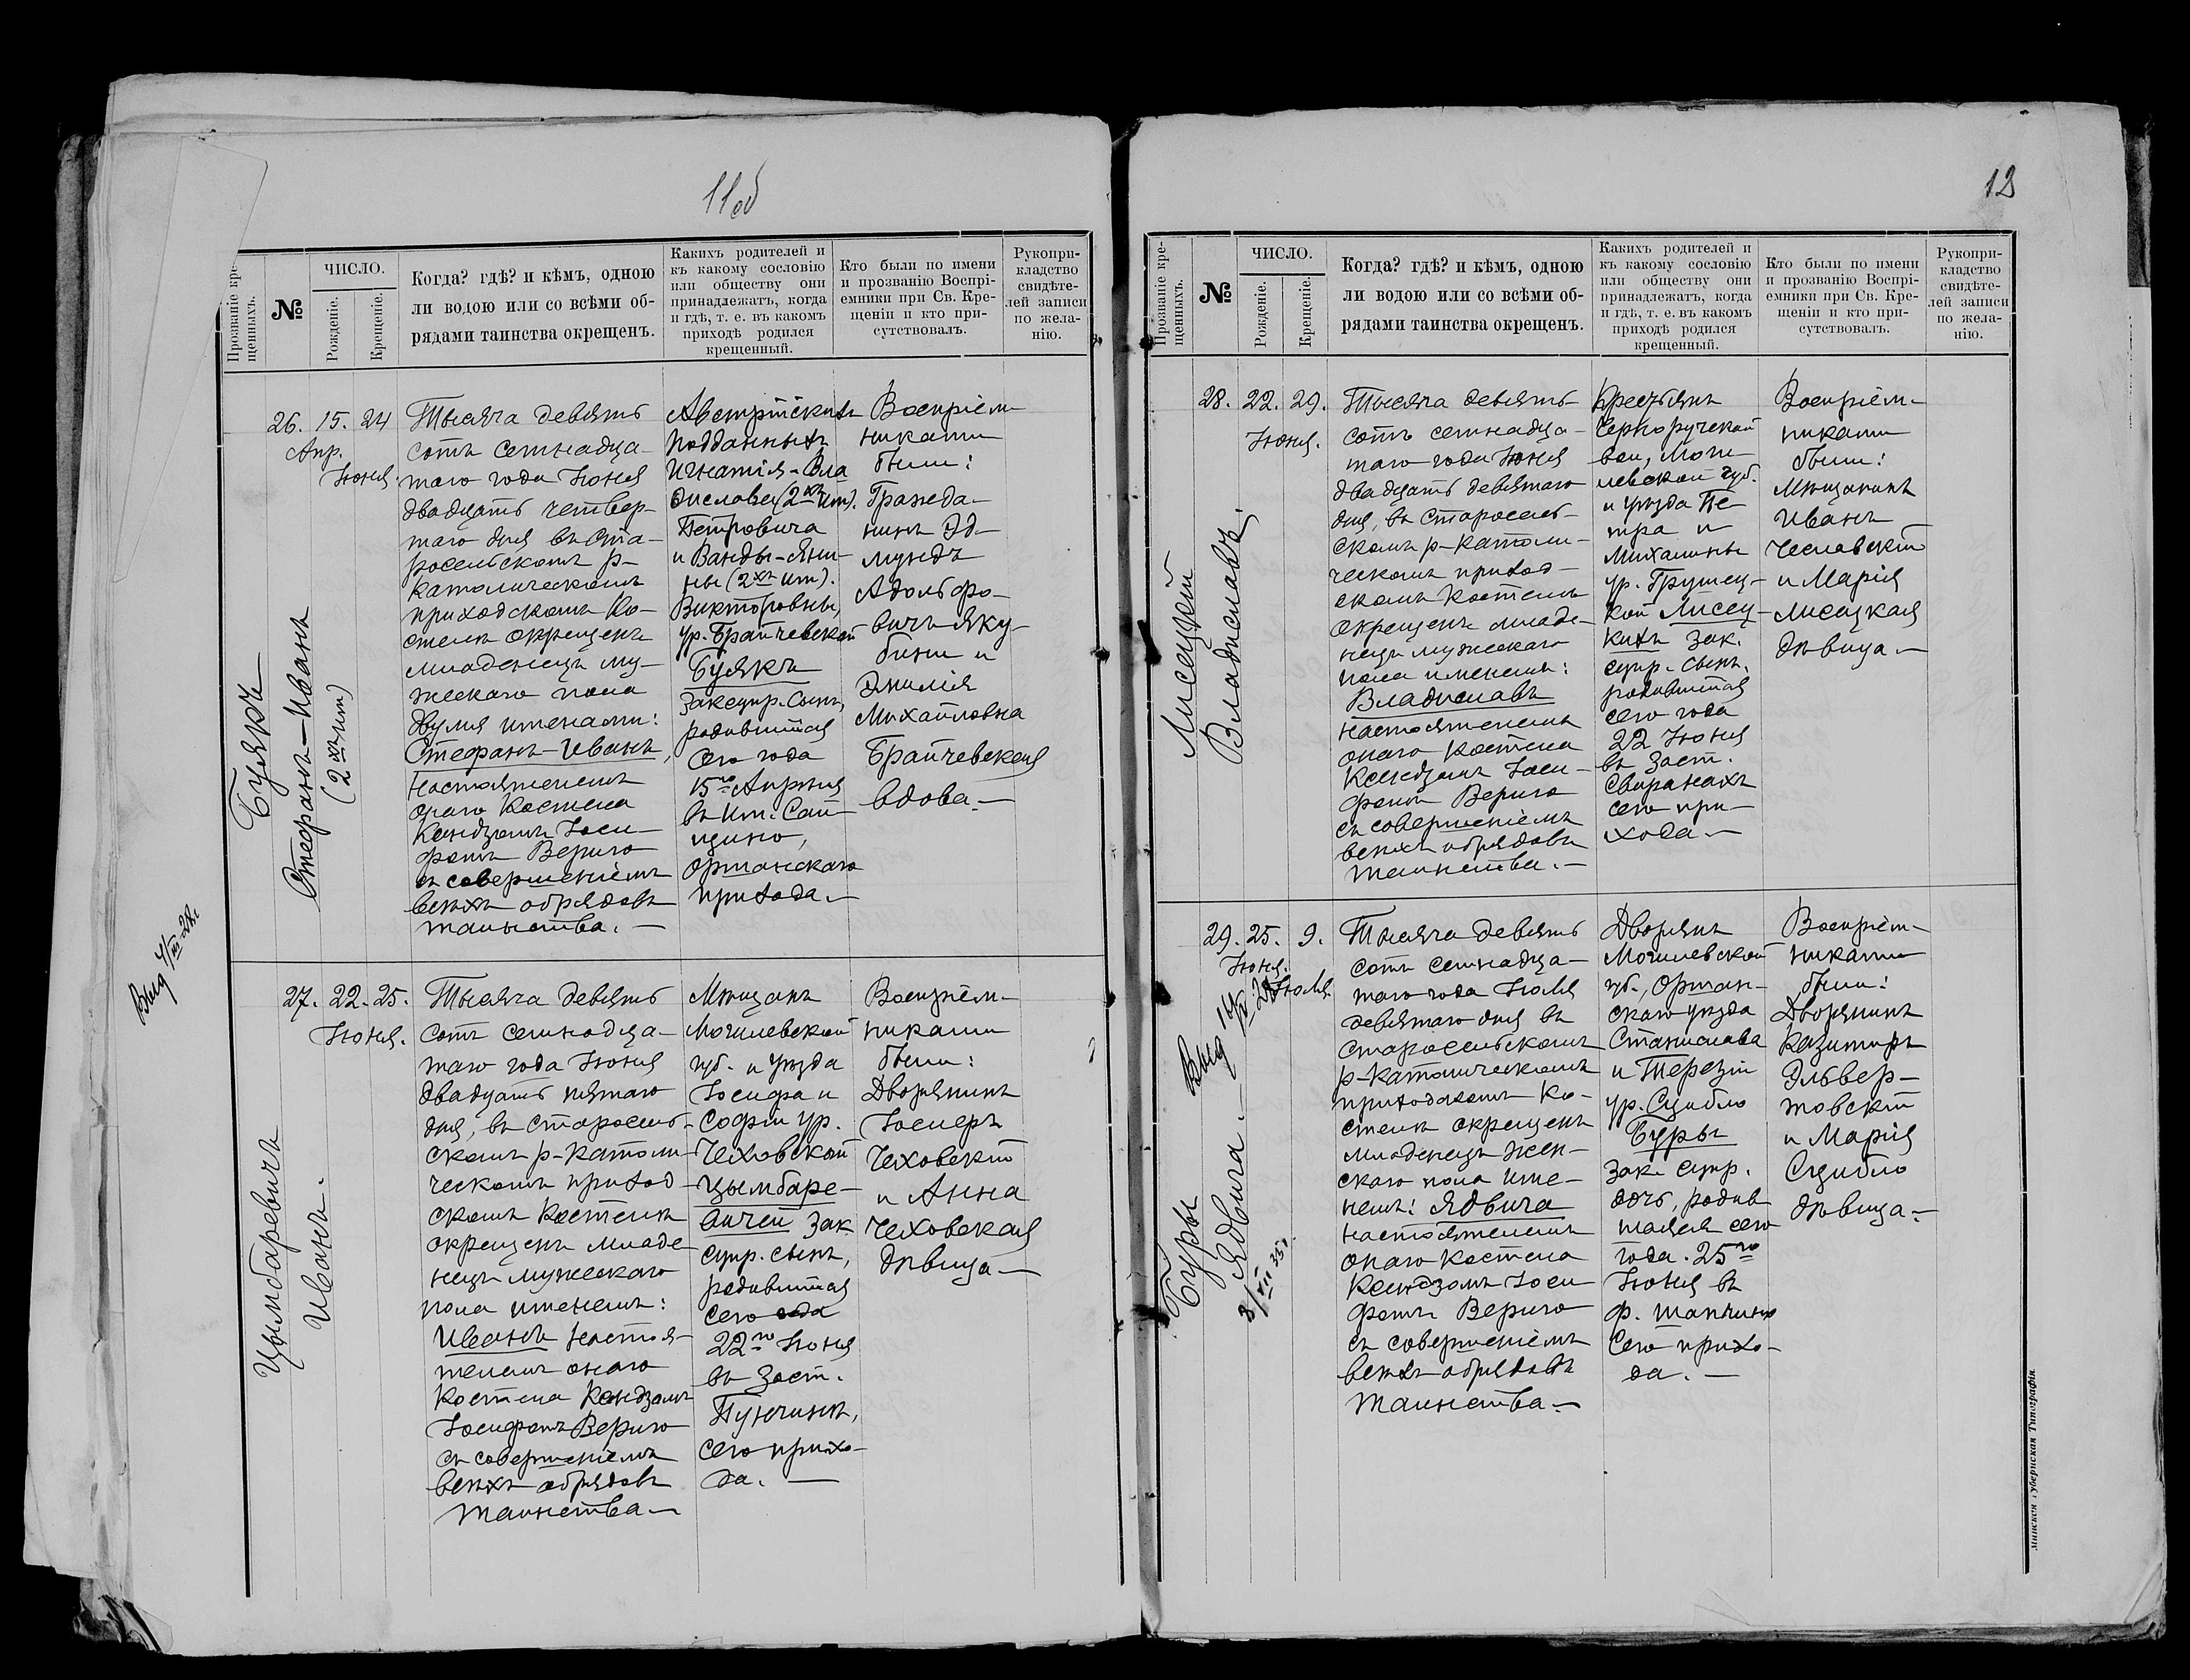 11об
Прозваніе кре-
щенныхъ.
№
ЧИСЛО.
Рожденіе.
Крещеніе.
Когда? гдѣ? и кѣмъ, одною
ли водою или со всѣми об-
рядами таинства окрещенъ.
Какихъ родителей и
къ какому сословію
или обществу они
принадлежатъ, когда
и гдѣ, т. е. въ какомъ
приходѣ родился
крещенный.
Кто были по имени
и прозванію Воспрі-
емники при Св. Кре-
щеніи и кто при-
сутствовалъ.
Рукопри-
кладство
свидѣте-
лей записи
по жела-
нію.
Булякъ
Стефанъ-Иванъ
(2хъ им)
26. 15. 24
Апр.
Іюня.
Тысяча девять
сотъ семнадца-
таго года Іюня
двадцать четвер-
таго дня въ Ста-
росельскомъ р-
католическомъ
приходскомъ Ко-
стелѣ окрещенъ
младенецъ му-
жескаго пола
двумя именами:
Стефанъ-Иванъ,
настоятелемъ
онаго Костела
Ксендзомъ Іоси-
фомъ Вериго
съ совершеніемъ
всѣхъ обрядовъ
таинства. —
Австрійскихъ
подданныхъ
Игнатія-Вла
дислава (2хъ им).
Петровича
и Ванды-Яни-
ны (2хъ им).
Викторовны,
ур. Брайчевской
Булякъ
зак. супр. сынъ,
родившійся
сего года
15го Апрѣля
въ им. Сай-
щино,
Оршанскаго
прихода. —
Воспріем-
никами
были:
Гражда-
нинъ Эд-
мундъ
Адольфо-
вичъ Яку-
бини и
Эмилія
Михайловна
Брайчевская
вдова. —
Выд 4/III 28г.
Цымбаревичъ
Иванъ.
27. 22. 25.
Іюня.
Тысяча девять
сотъ семнадца-
таго года Іюня
двадцать пятаго
дня, въ Старосель-
скомъ р-католи-
ческомъ приход-
скомъ Костелѣ
окрещенъ младе-
нецъ мужескаго
пола именемъ:
Иванъ настоя-
телемъ онаго
Костела Ксендзомъ
Іосифомъ Вериго
съ совершеніемъ
всѣхъ обрядовъ
таинства —
Мѣщанъ
Могилевской
губ. и уѣзда
Іосифа и
Софіи ур.
Чеховской
Цымбаре-
вичей зак
супр. сынъ,
родившійся
сего года
22го Іюня
въ заст.
сего прихо-
да. —
Воспріем-
никами
были:
Дворянинъ
Чеховскій
и Анна
Чеховская
дѣвица —
12
Прозваніе кре-
щенныхъ.
№
ЧИСЛО.
Рожденіе.
Крещеніе.
Когда? гдѣ? и кѣмъ, одною
ли водою или со всѣми об-
рядами таинства окрещенъ.
Какихъ родителей и
къ какому сословію
или обществу они
принадлежатъ, когда
и гдѣ, т. е. въ какомъ
приходѣ родился
крещенный.
Кто были по имени
и прозванію Воспрі-
емники при Св. Кре-
щеніи и кто при-
сутствовалъ.
Рукопри-
кладство
свидѣте-
лей записи
по жела-
нію.
Лисецкій
Владиславъ.
28. 22. 29.
Іюня.
Тысяча девять
сотъ семнадца-
таго года Іюня
двадцать девятаго
дня, въ Старосель-
скомъ р-католи-
ческомъ приход-
скомъ Костелѣ
окрещенъ младе-
нецъ мужескаго
пола именемъ:
Владиславъ
настоятелемъ
онаго Костела
Ксендзомъ Іоси-
фомъ Вериго
съ совершеніемъ
всѣхъ обрядовъ
таинства. —
Крестьянъ
Черноручской
вол, Моги-
левской губ.
и уѣзда Пе-
тра и
Михалины
ур. Грушец-
кой Лисец-
кихъ зак.
супр. сынъ,
родившійся
сего года
22 Іюня
въ заст.
Свиранахъ
сего при-
хода —
Воспріем-
никами
были:
Мѣщанинъ
Иванъ
Чеславскій
и Марія
Лисецкая
дѣвица. —
Буры
Ядвига. —
29. 25. 9.
Іюня.
Іюля.
Тысяча девять
сотъ семнадца-
таго года Іюля
девятаго дня въ
Старосельскомъ
р-католическомъ
приходскомъ Ко-
стелѣ окрещенъ
младенецъ жен-
скаго пола име-
немъ: Ядвига
настоятелемъ
онаго Костела
Ксендзомъ Іоси
фомъ Вериго
съ совершеніемъ
всѣхъ обрядовъ
таинства —
Дворянъ
Могилевской
губ., Оршан-
скаго уѣзда
Станислава
и Терезіи
ур. Сцибло
Буры
зак. супр.
дочь, родив
шаяся сего
года. 25го
Іюня въ
сего прихо-
да. —
Воспріем-
никами
были:
Дворянинъ
Казимиръ
Эльвер-
товскій
и Марія
Сцибло
дѣвица —
3/VII 35г.
Минская Губернская Типографія